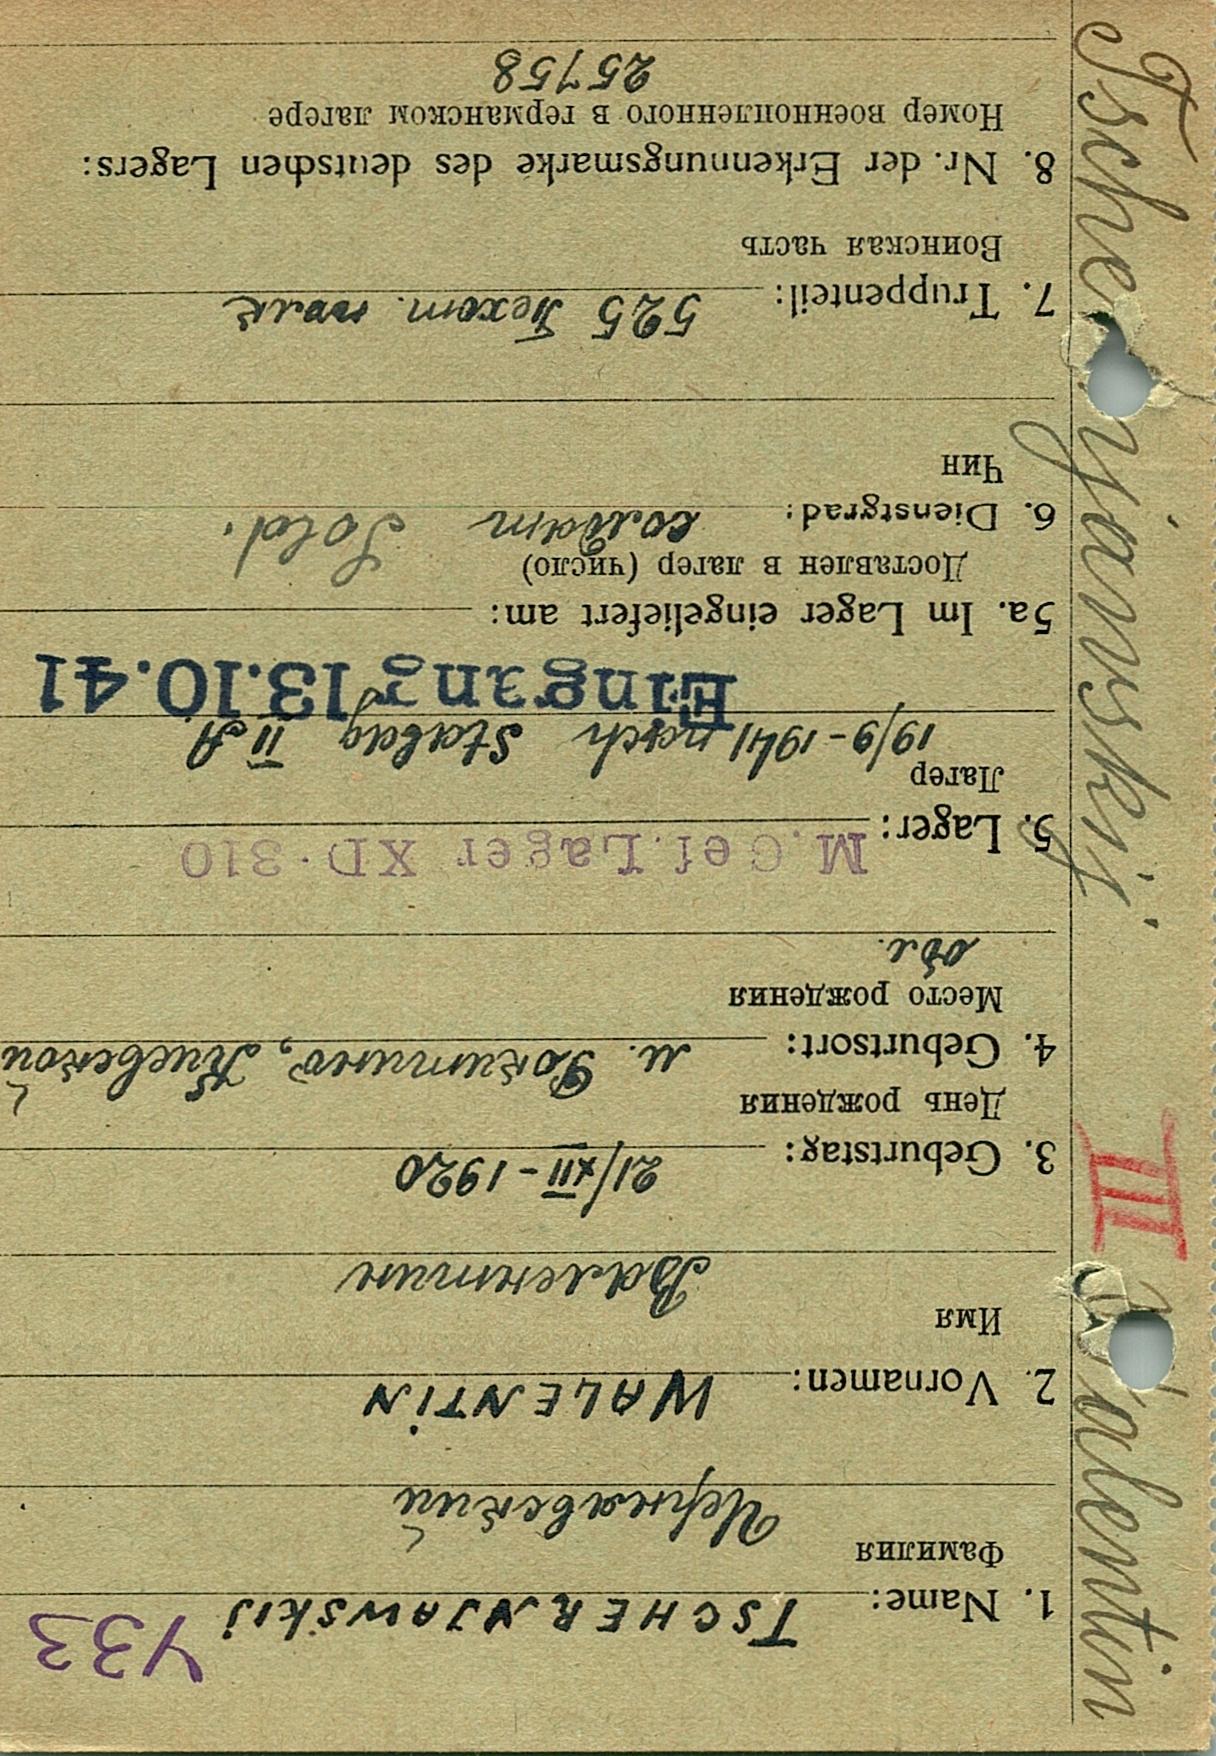 433
1. Name: TSCHERNJAWSKIJ
Фамилия
Чернявский
2. Vornamen: WALENTIN
Имя
Валентин
3. Geburtstag: 21/XII-1920
День рождения
4. Geburtsort: м. Рокитино, Киевской
Место рождения
обл.
5. Lager: M.Gef.Lager XD·310
Лагер
19/9-1941 nach Stalag II A
Eingang 13.10.41
5a. Im Lager eingeliefert am:
Доставлен в лагер (число)
6. Dienstgrad: солдат Sold.
Чин
7. Truppenteil: 525 Пехот. полк
Воинская часть
8. Nr. der Erkennungsmarke des deutschen Lagers:
Номер военнопленного в германском лагере
25758
Tschernjawskij
III
Walentin